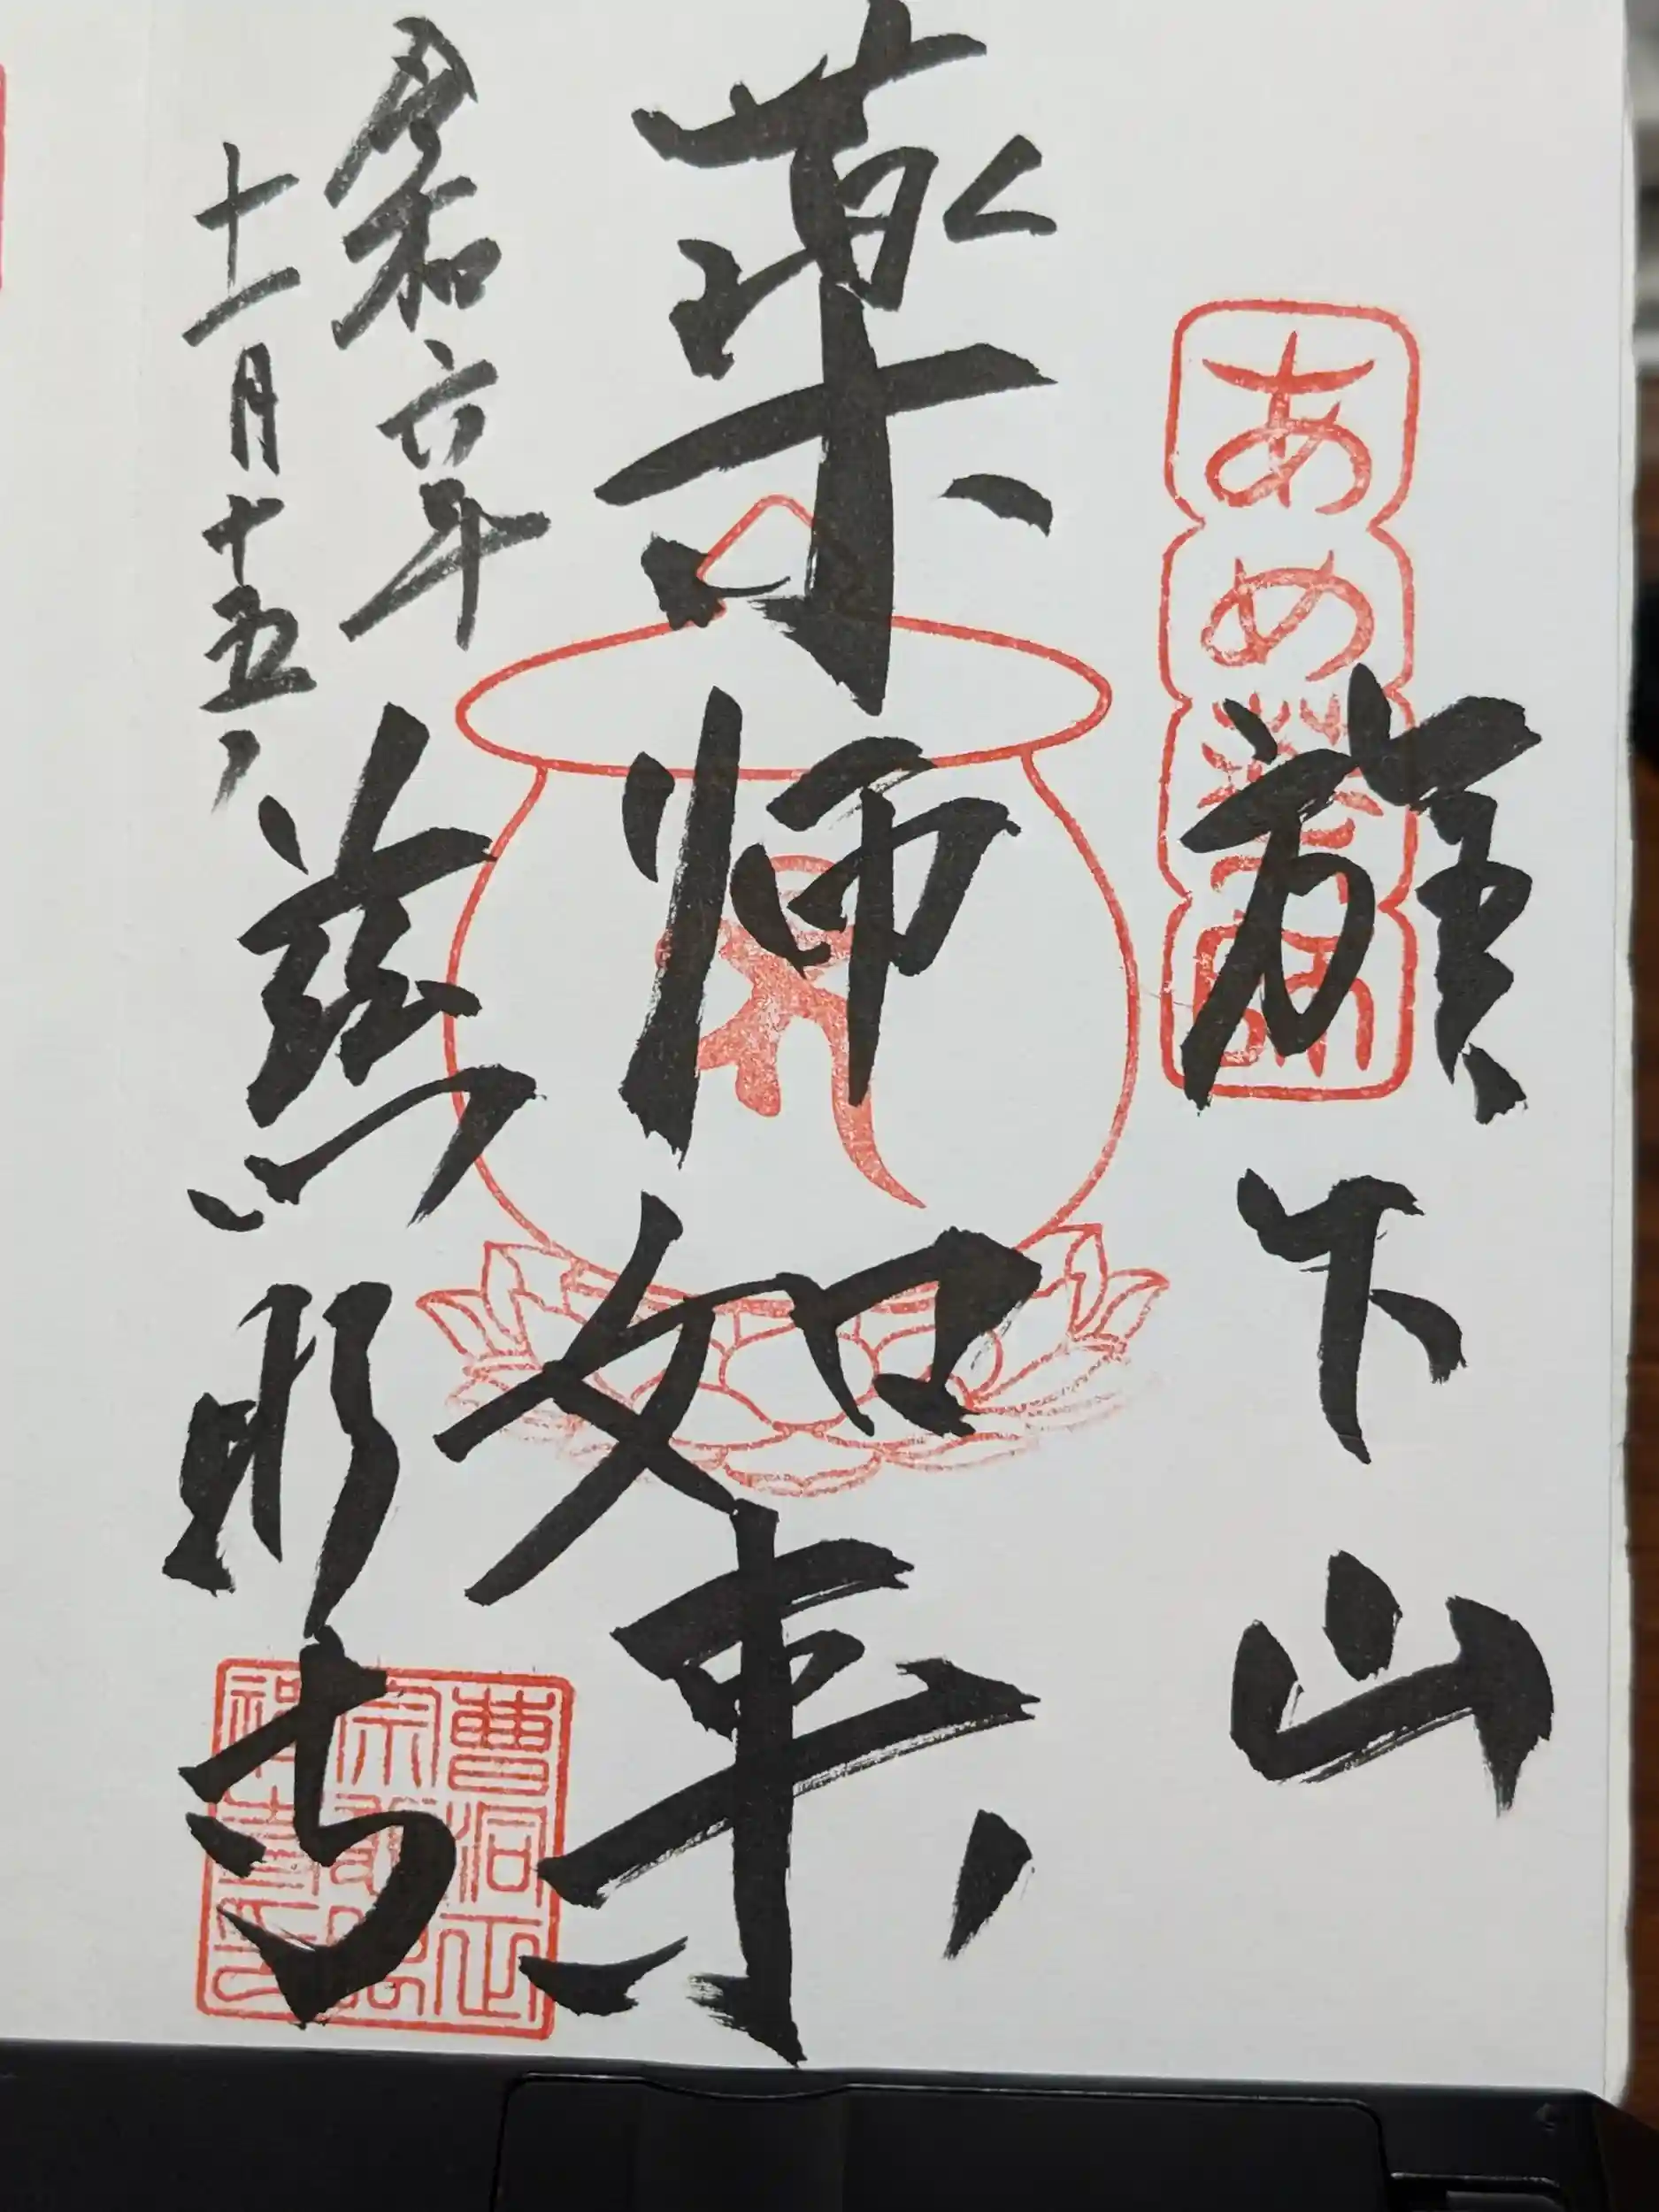 あめ薬師
旗下山
薬師如来
令和六年
十一月十五日
慈明寺